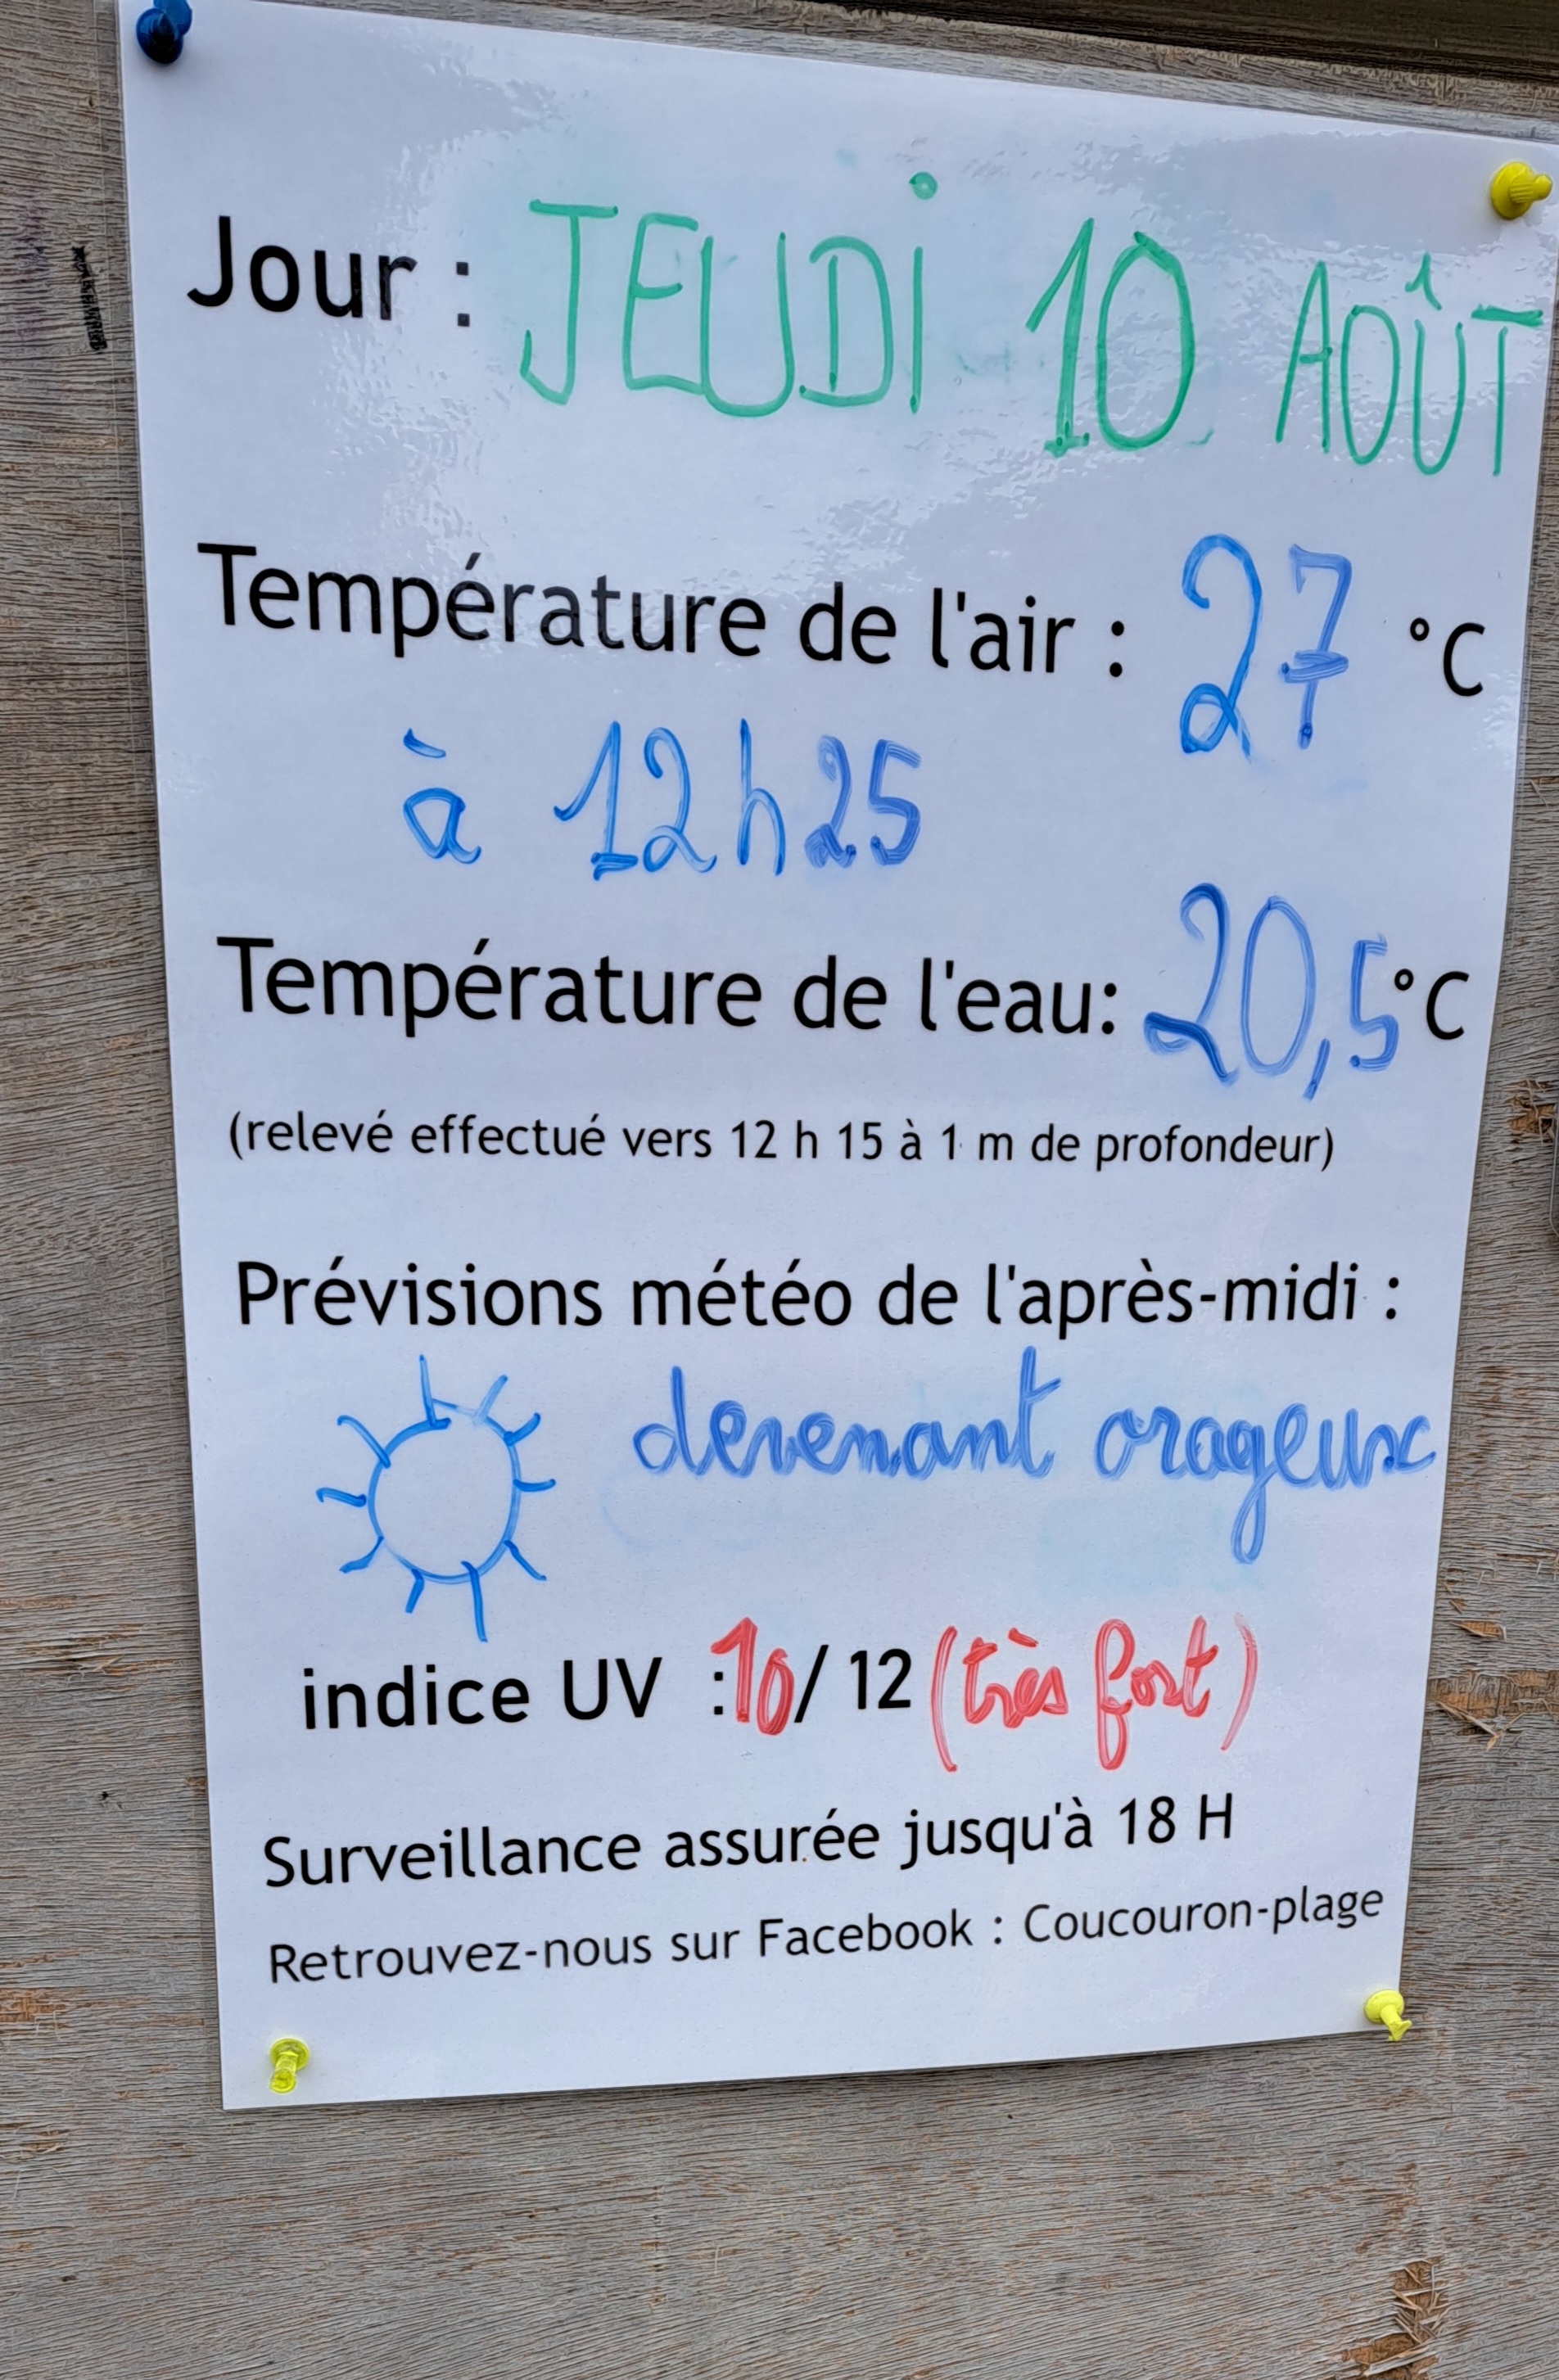 Jour : JEUDi 10 AOÛT
Température de l'air : 27 °C
à 12h25
Température de l'eau: 20,5°C
(relevé effectué vers 12 h 15 à 1 m de profondeur)
Prévisions météo de l'après-midi :
devenant orageux
indice UV :10/ 12 (très fort)
Surveillance assurée jusqu'à 18 H
Retrouvez-nous sur Facebook : Coucouron-plage